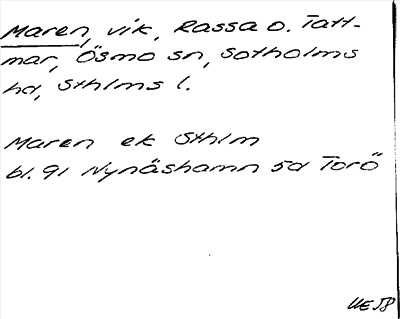 Maren, vik, Rassa o. Tatt-
mar, Ösmo sn, Sotholms
hd, Sthlms l.
Maren ek Sthlm
bl. 91 Nynäshamn 5d Torö
UE 58